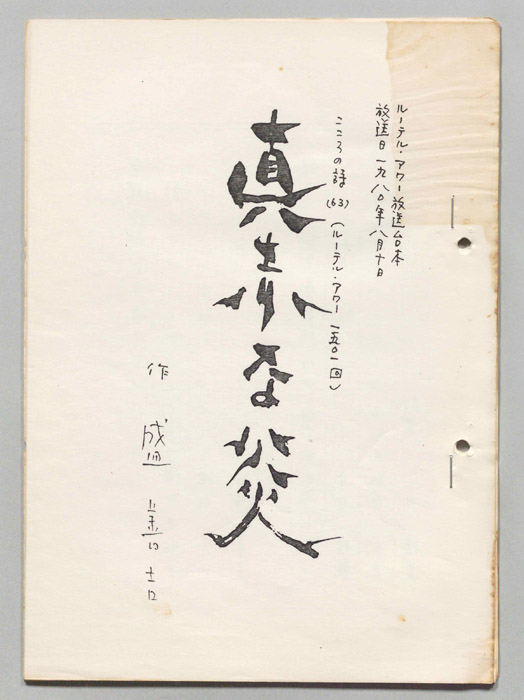 ルーテル・アワー放送台本
放送日 一九八〇年八月十日
こころの詩(63)(ルーテル・アワー 一五〇一回)
真赤な炎
作 盛 善吉